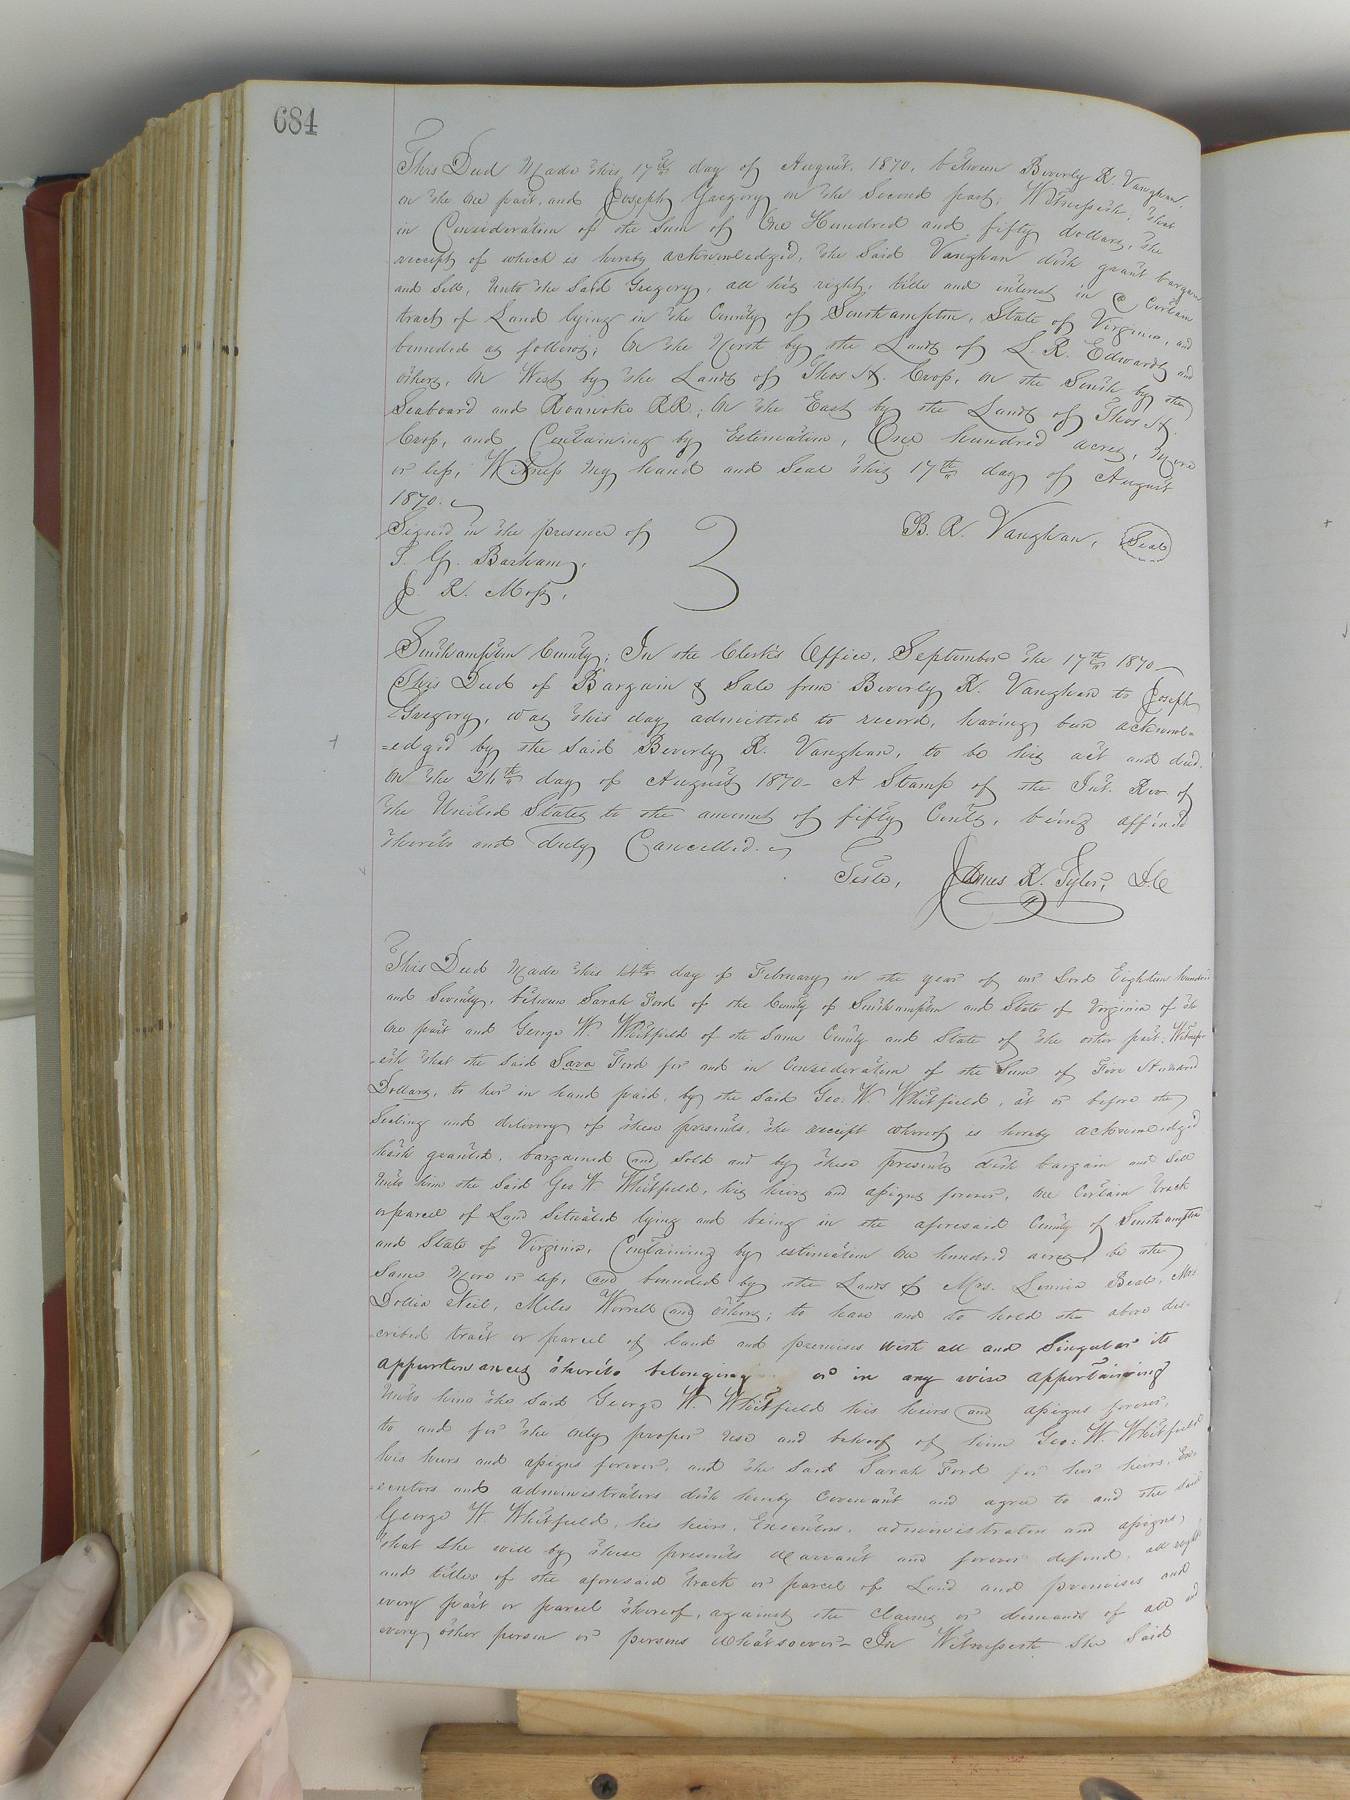 684
This Deed Made this 17th day of August. 1870, between Beverly R. Vaughan.
on the one part, and Joseph Gregory on the Second part; Witnesseth; that
in Consideration of the sum of One Hundred and fifty dollars, the
receipt of which is hereby acknowledged, the said Vaughan doth grant bargain
and sell, unto the said Gregory, all his right, title and interest in a Certain
tract of Land lying in the County of Southampton, State of Virginia, and
bounded as follows; On the North by the Lands of L. R. Edwards and
others, On West by the Lands of Thos H. Crop, on the South by the
Seaboard and Roanoke RR; On the East by the Lands of Thos H.
Crop, and Containing by Estimation, One hundred acres, more
or less, Witness my hand and Seal this 17th day of August
1870.
Signed in the presence of
B. R. Vaughan, Seal
S. G. Barham,
J. R. Moss,
Southampton County; In the Clerk's Office, September the 17th 1870
This Deed of Bargain & Sale from Beverly R. Vaughan to Joseph
Gregory, was this day admitted to record, having been acknowl=
=edged by the said Beverly R. Vaughan, to be his act and deed.
On the 24th day of August 1870- A Stamp of the Int. Rev of
the United States to the amount of fifty Cents, being affixed
thereto and duly Cancelled.
Teste, James R. Tyler, DC
This Deed Made this 14th day of February in the year of our Lord Eighteen hundred
and Seventy, between Sarah Ford of the County of Southampton and State of Virginia of the
one part and George W. Whitfield of the Same County and State of the other part. Witness
=eth that the said Sara Ford for and in Consideration of the Sum of Five Hundred
Dollars, to her in hand paid, by the said Geo. W. Whitfield, at or before the
Sealing and delivery of these presents, the receipt whereof is hereby acknowledged
hath granted, bargained and sold and by these presents doth bargain and sell
unto him the said Geo W Whitfield, his heirs and assigns forever, one Certain track
or parcel of Land Situated lying and being in the aforesaid County of Southampton
and State of Virginia, Containing by estimation one hundred acres be the
Same more or less, and bounded by the Lands of Mrs. Lennie Beal, Mrs
Dollia Neil, Miles Worrell and others; to have and to hold the above des-
=cribed tract or parcel of land and premises with all and Singular its
appurtenances thereto belonging or in any wise appertaining
unto him the said George W. Whitfield his heirs and assigns forever,
to and for the only proper use and behoof of him Geo: W. Whitfield
his heirs and assigns forever, and the said Sarah Ford for her heirs, Exe-
=cutors and administrators doth hereby Covenant and agree to and the said
George W Whitfield, his heirs, Executors, administrators and assigns,
that she will by these presents warrant and forever defend, all right
and titles of the aforesaid track or parcel of Land and premises and
every part or parcel thereof, against the Claims or demands of all and
every other person or persons whatsoever- In Witnesseth She Said